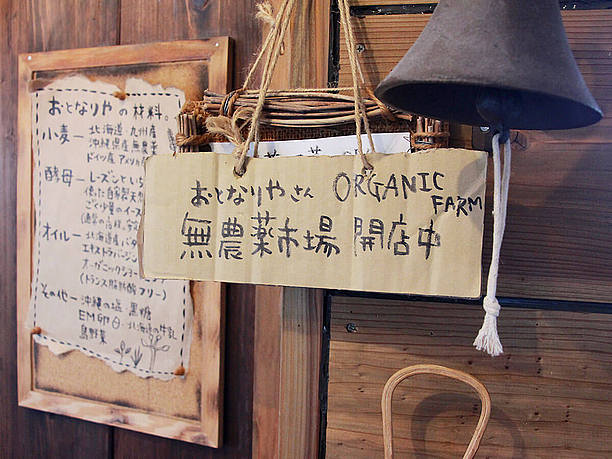 おとなりやの材料。
小麦ー北海道 九州産
沖縄県産無農薬
ドイツ産アメリカ
酵母ーレーズンといち
使った自家製天然
オイルー北海道産バタ
エキストラバージン
オーガニックショート
(トランス脂肪酸フリー)
その他ー沖縄の塩 黒糖
EM卵 北海道の牛乳
島野菜
おとなりやさん ORGANIC FARM
無農薬市場 開店中